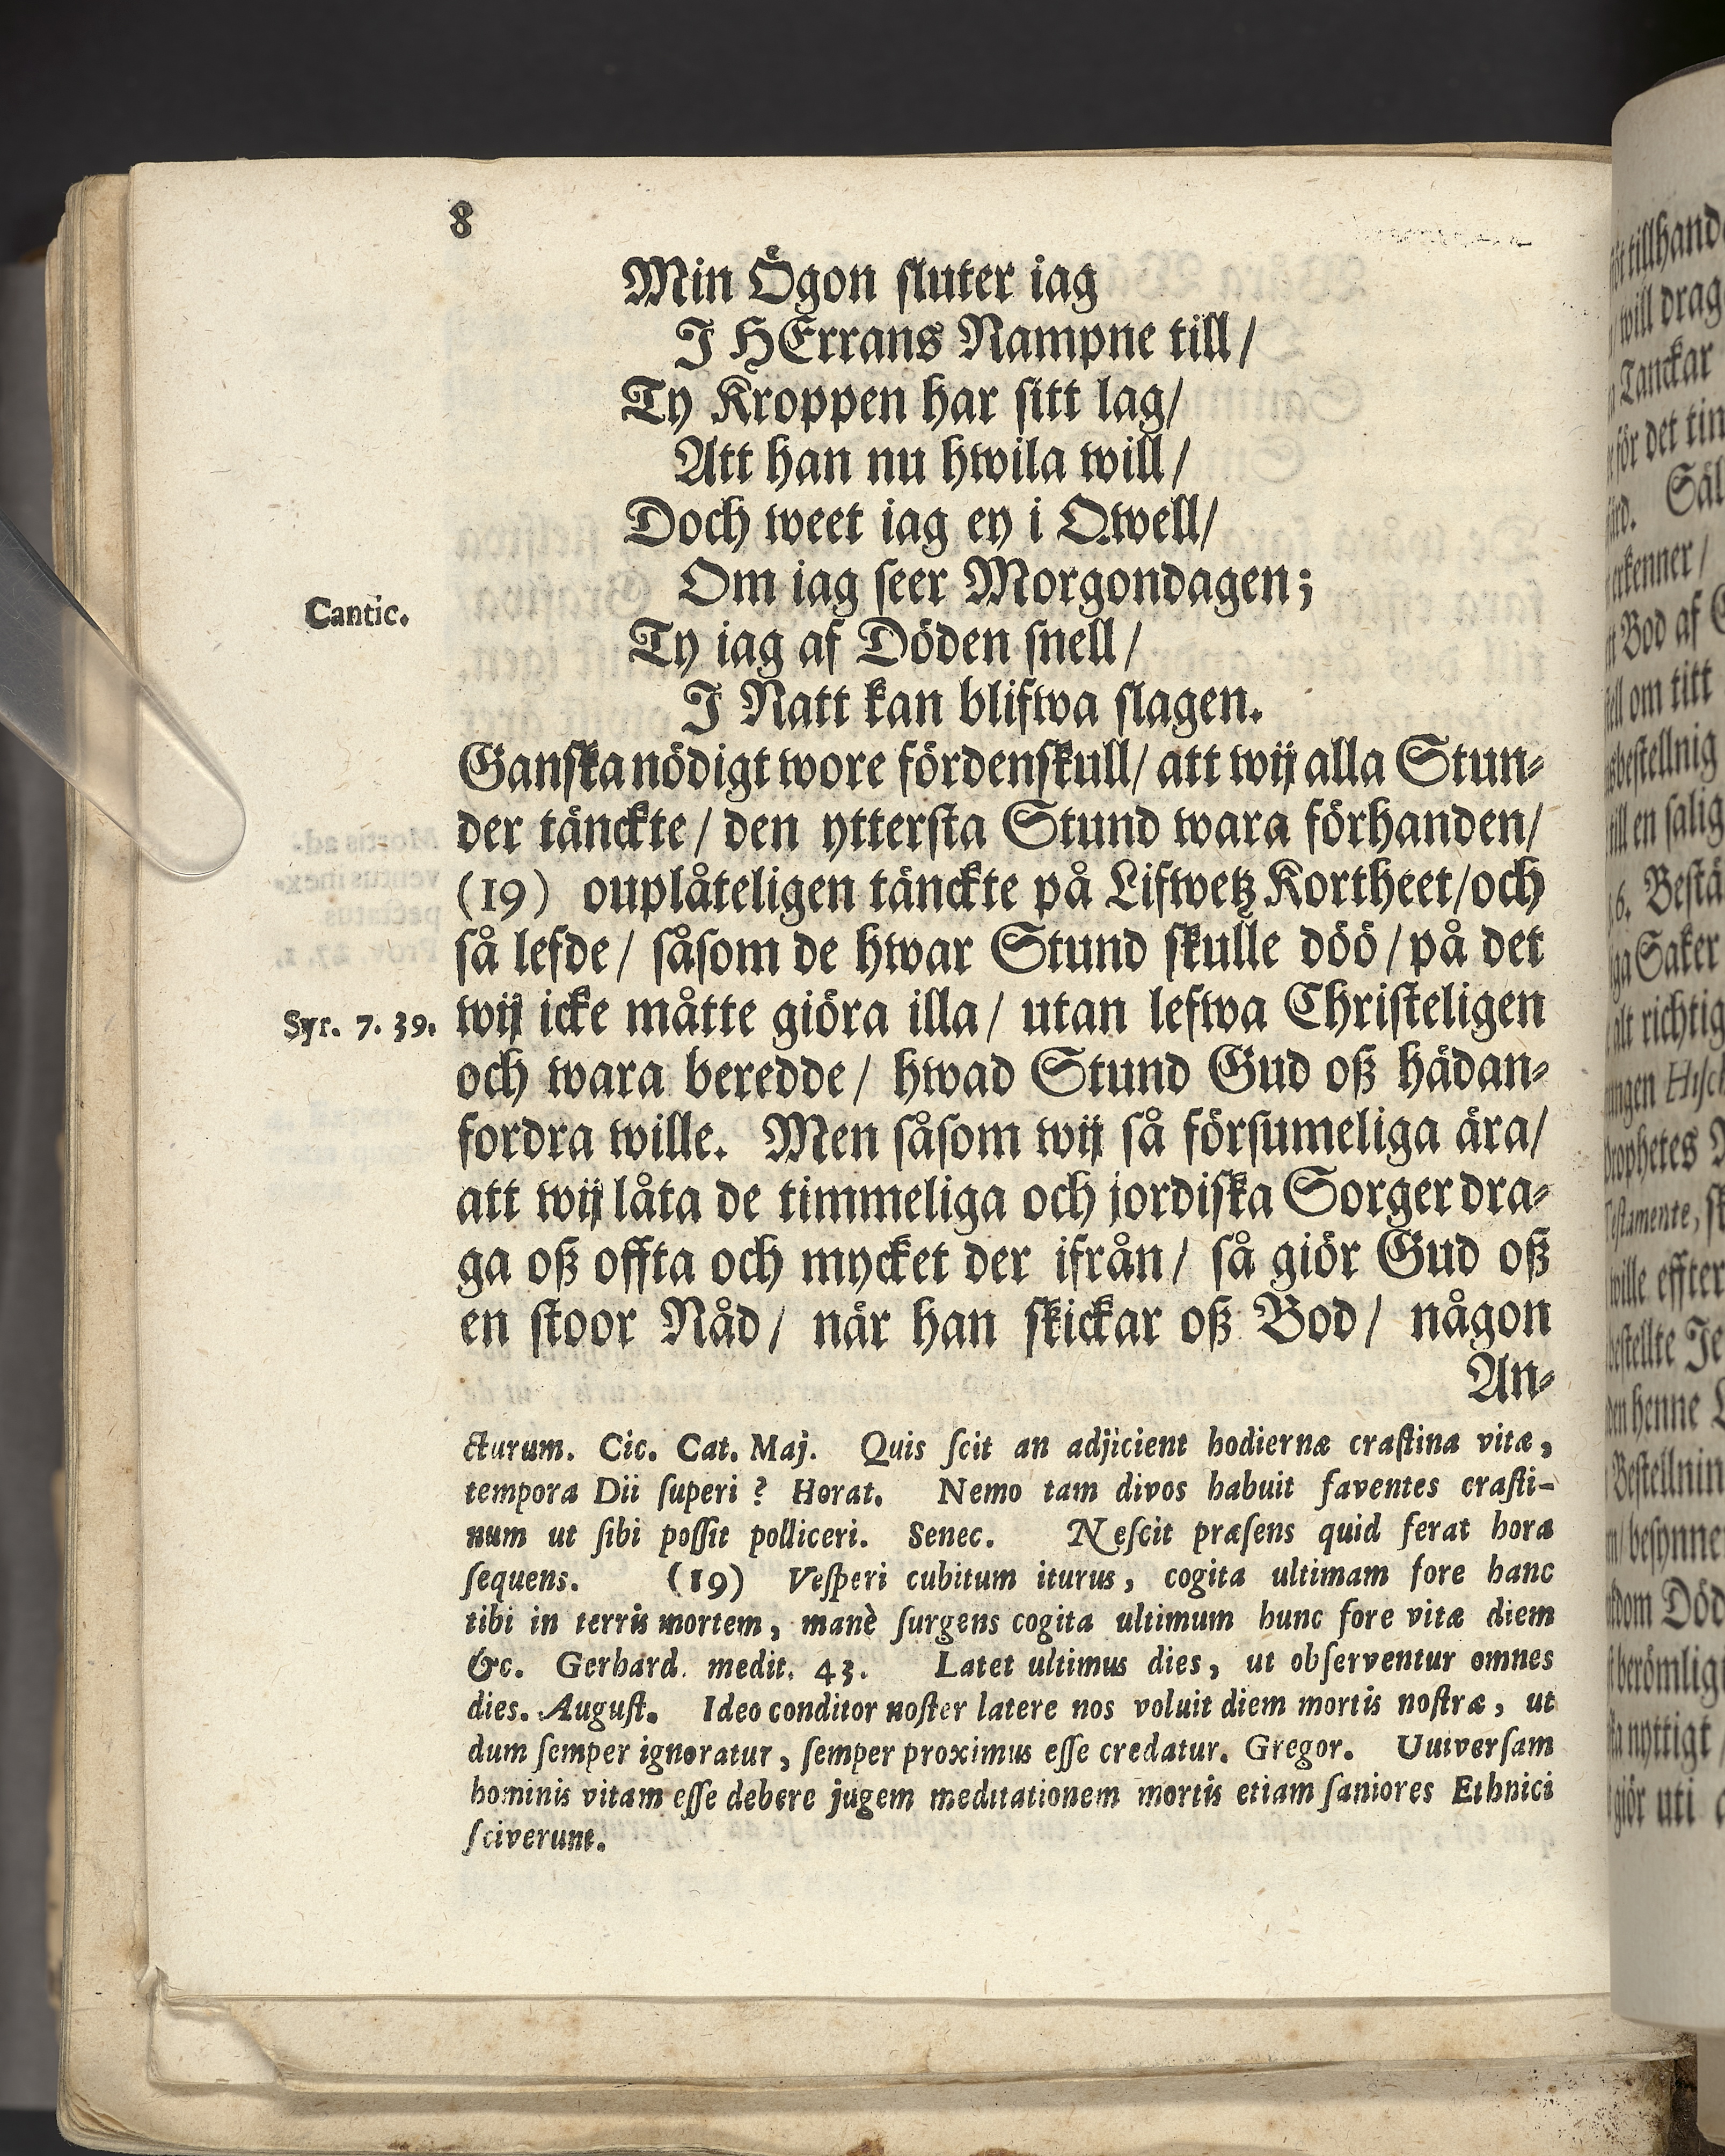 8
Min Ögon sluter iag
I HErrans Nampne till/
Ty Kroppen har sitt lag/
Att han nu hwila will/
Doch weet iag ey i Qwell/
Om iag seer Morgondagen;
Cantic.
Ty iag af Döden snell/
I Natt kan blifwa slagen.
Ganska nödigt wore fördenskull/ att wij alla Stun-
der tänckte/ den yttersta Stund wara förhanden/
(19) ouplåteligen tänckte på Lifwetz Kortheet/och
så lefde/ såsom de hwar Stund skulle döö/på det
Syr. 7. 39.
wij icke måtte giöra illa/ utan lefwa Christeligen
och wara beredde/ hwad Stund Gud oß hädan-
fordra wille. Men såsom wij så försumeliga ära/
att wij låta de timmeliga och jordiska Sorger dra-
ga oß offta och mycket der ifrån/ så giör Gud oß
en stoor Nåd/ när han skickar oß Bod/ någon
An-
cturum. Cic. Cat. Maj. Quis ſcit an adjicient hodiernæ craſtina vitæ,
tempora Dii ſuperi? Horat. Nemo tam divos habuit faventes craſti-
num ut ſibi poſſit polliceri. Senec. Neſcit præſens quid ferat hora
ſequens. (19) Veſperi cubitum iturus, cogita ultimam fore hanc
tibi in terris mortem, manè ſurgens cogita ultimum hunc fore vitæ diem
&c. Gerhard. medit. 43. Latet ultimus dies, ut obſerventur omnes
dies. Auguſt. Ideo conditor noſter latere nos voluit diem mortis noſtræ, ut
dum ſemper ignoratur, ſemper proximus eſſe credatur. Gregor. Uuiverſam
hominis vitam eſſe debere jugem meditationem mortis etiam ſaniores Ethnici
ſciverunt.